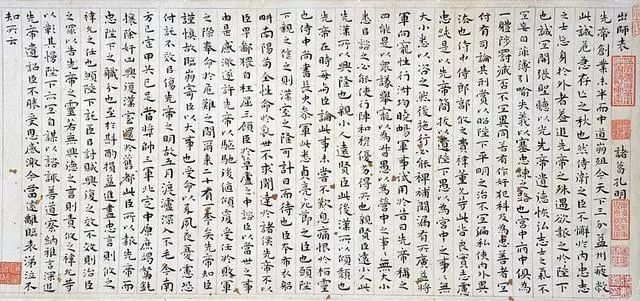 出師表　諸葛孔明
先帝創業未半而中道崩殂今天下三分益州疲敝
此誠危急存亡之秋也然侍衛之臣不懈於內忠志
之士忘身於外者蓋追先帝之殊遇欲報之於陛下
也誠宜開張聖聽以光先帝遺德恢弘志士之氣不
宜妄自菲薄引喻失義以塞忠諫之路也宮中府中俱為
一體陟罰臧否不宜異同若有作姦犯科及為忠善者宜
付有司論其刑賞以昭陛下平明之治不宜偏私使內外異
法也侍中侍郎郭攸之費禕董允等此皆良實志慮
忠純是以先帝簡拔以遺陛下愚以為宮中之事事無
大小悉以咨之然後施行必能裨補闕漏有所廣益將
軍向寵性行淑均曉暢軍事試用於昔日先帝稱之
曰能是以眾議舉寵為督愚以為營中之事事無大小
悉以咨之必能使行陣和穆優劣得所也親賢臣遠小人此
先漢所以興隆也親小人遠賢臣此後漢所以傾頹也
先帝在時每與臣論此事未嘗不歎息痛恨於桓靈
也侍中尚書長史參軍此悉貞亮死節之臣也願陛
下親之信之則漢室之隆可計日而待也臣本布衣躬
耕南陽苟全性命於亂世不求聞達於諸侯先帝不以
臣卑鄙猥自枉屈三顧臣於草廬之中諮臣以當世之事
由是感激遂許先帝以驅馳後值傾覆受任於敗軍
之際奉命於危難之間爾來二十有一年矣先帝知臣
謹慎故臨崩寄臣以大事也受命以來夙夜憂慮恐
付託不效以傷先帝之明故五月渡瀘深入不毛今南
方已定甲兵已足當獎帥三軍北定中原庶竭駑鈍
攘除姦凶興復漢室還於舊都此臣所以報先帝而忠
陛下之職分也至於斟酌損益進盡忠言則攸之
禕允之任也願陛下託臣以討賊興復之效不效則治臣
之罪以告先帝之靈若無興德之言則責攸之禕允等
以彰其慢陛下亦宜自謀以諮諏善道察納雅言深追
先帝遺詔臣不勝受恩感激今當遠離臨表涕泣不
知所云